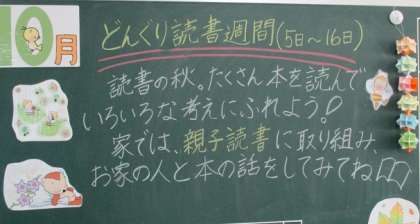 10月
どんぐり読書週間(5日～16日)
読書の秋。たくさん本を読んで
いろいろな考えに、ふれよう!
家では、親子読書に取り組み、
お家の人と本の話をしてみてね